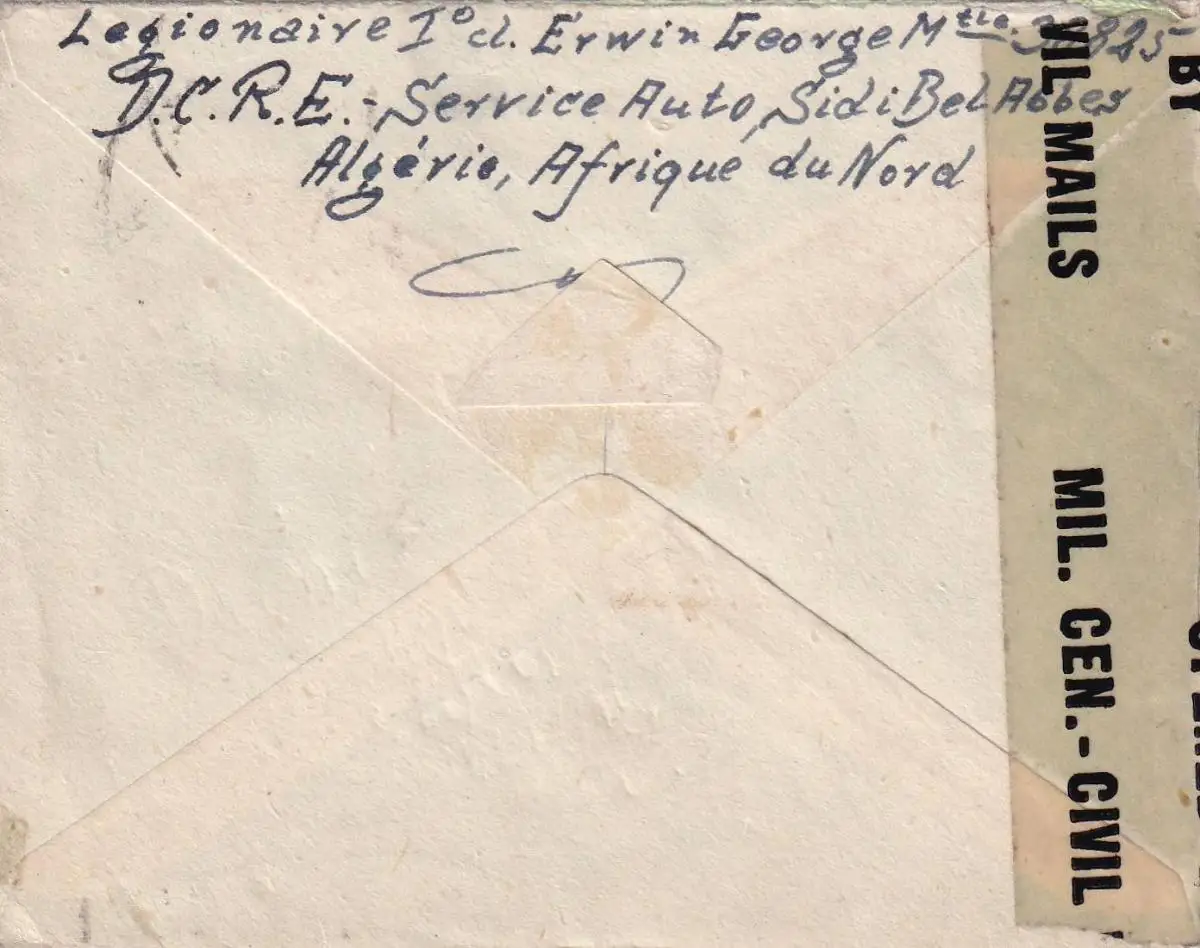 Legionaire I° cl. Erwin George Mtle.
D.C.R.E. - Service Auto, Sidi Bel Abbes
Algérie, Afrique du Nord
VIL MAILS
MIL. CEN.-CIVIL
BY